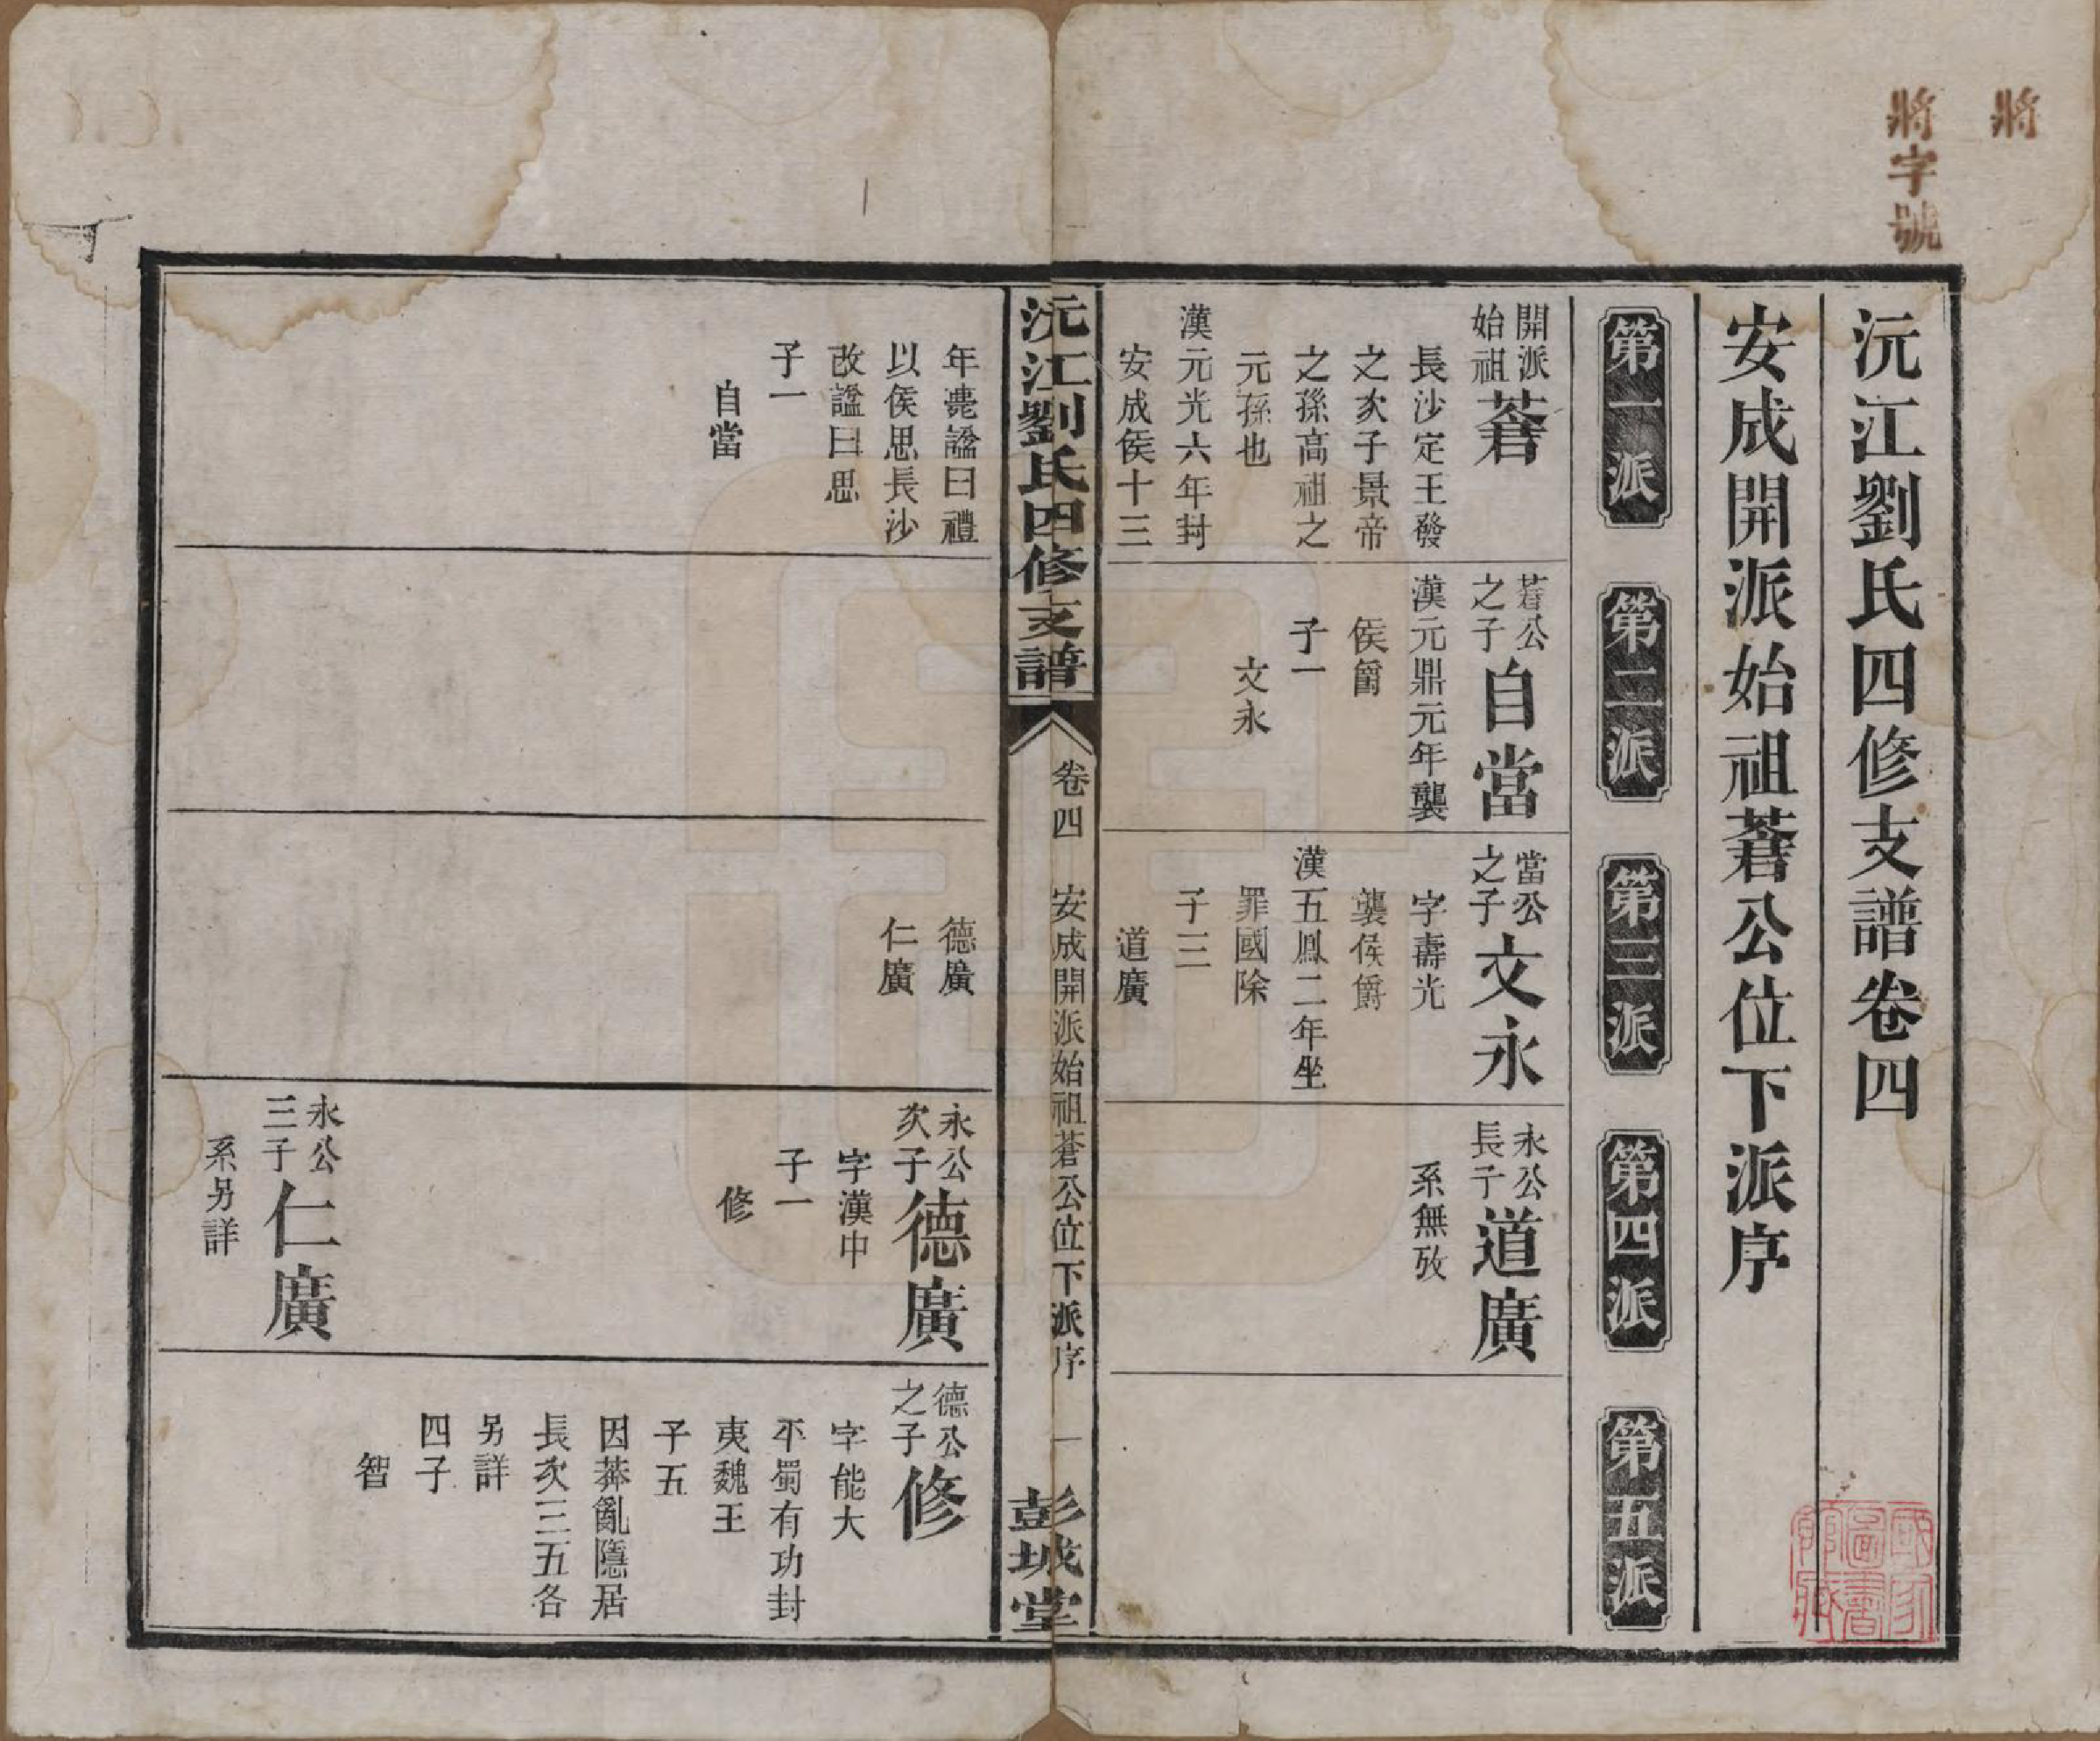 將
將字號
沅江劉氏四修支譜卷四
安成開派始祖蒼公位下派序
第一派
第二派
第三派
第四派
第五派
開派
始祖
蒼
長沙定王發
之次子景帝
之孫高祖之
元孫也
漢元光六年封
安成侯十三
蒼公
之子
自當
漢元鼎元年襲
侯爵
子一
文永
當公
之子
文永
字壽光
襲侯爵
漢五鳳二年坐
罪國除
子三
道廣
永公
長子
道廣
系無攷
沅江劉氏四修支譜
卷四
安成開派始祖蒼公位下派序
一
彭城堂
年薨諡曰禮
以侯思長沙
改諡曰思
子一
自當
德廣
仁廣
永公
次子
德廣
字漢中
子一
修
永公
三子
仁廣
系另詳
德公
之子
修
字能大
平蜀有功封
夷魏王
子五
因莽亂隱居
長次三五各
另詳
四子
智
國家圖書館藏